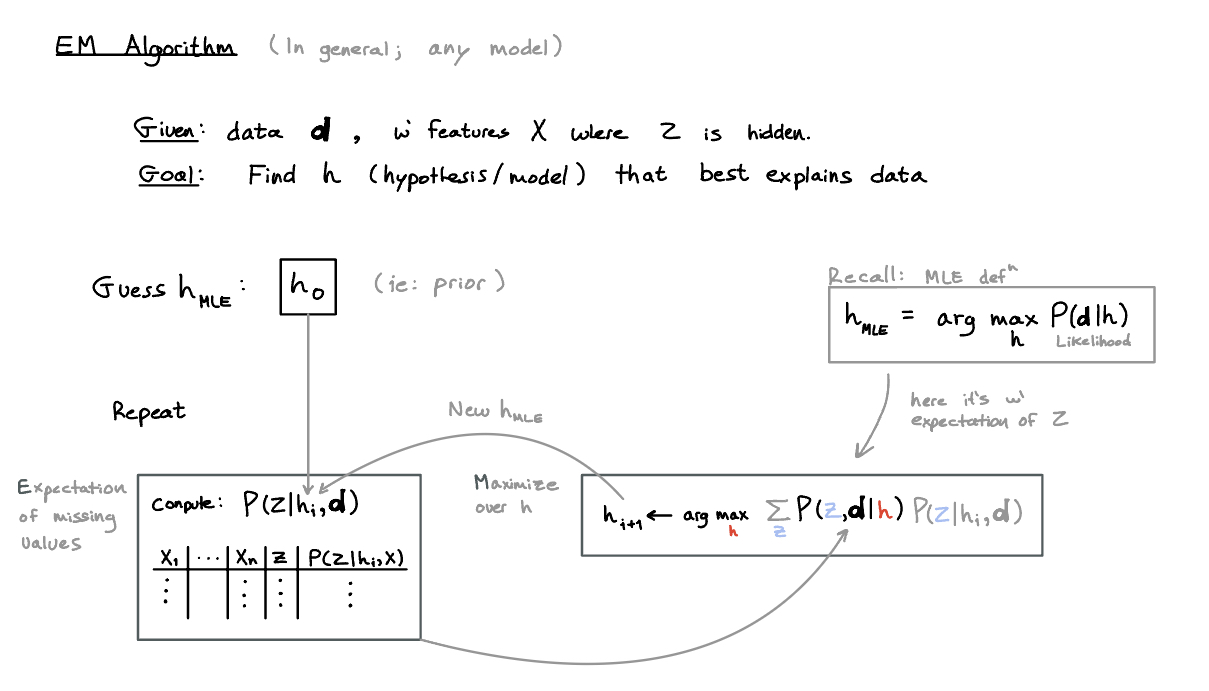 EM Algorithm (In general; any model)
Given: data d, w/ features X where Z is hidden.
Goal: Find h (hypothesis/model) that best explains data
Guess h_MLE: h_0 (ie: prior)
Recall: MLE defⁿ
h_MLE = arg max_h P(d|h)
Likelihood
here it's w/
expectation of Z
Repeat
New h_MLE
Expectation
of missing
values
Compute: P(Z|h_i,d)
X_1 | ... | X_n | Z | P(Z|h_i,X)
Maximize
over h
h_{i+1} ← arg max_h Σ_Z P(Z,d|h) P(Z|h_i,d)